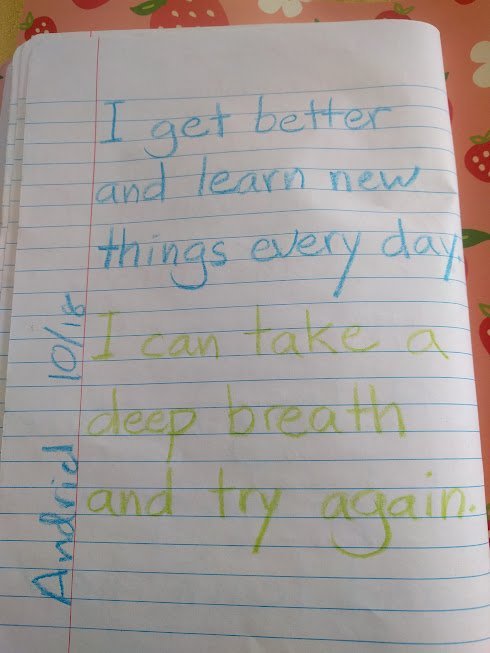 I get better
and learn new
things every day.
I can take a
deep breath
and try again.
Andriel 10/18